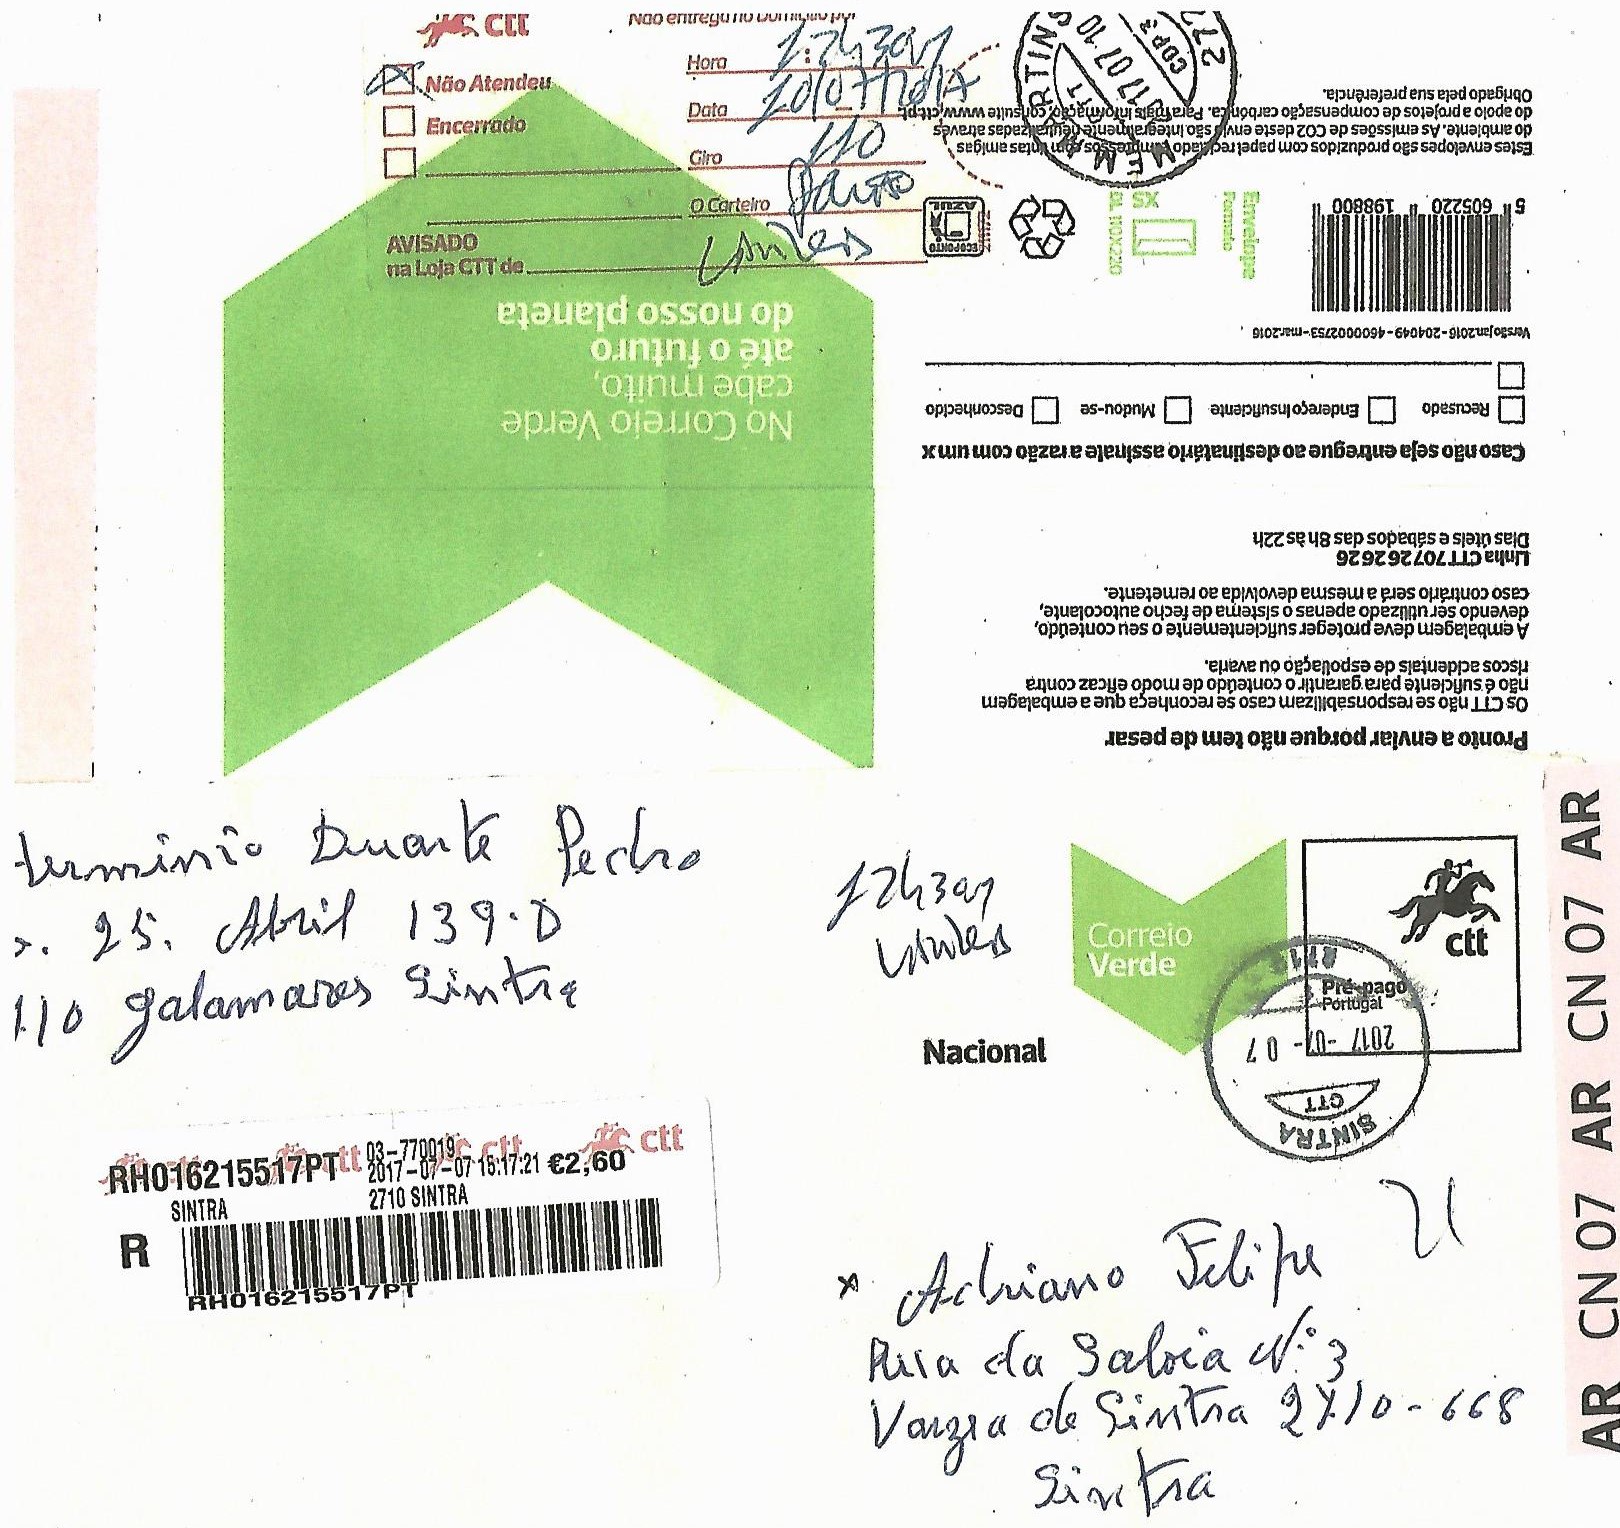 ctt
Não entregue no Domicílio por
Não Atendeu
Encerrado
Hora 12h30
Data
Giro 110
O Carteiro
AVISADO
na Loja CTT de
MEM MARTINS
CTT
17 07 10
CDP 3
Obrigado pela sua preferência.
do apoio a projetos de compensação carbónica. Para mais informação, consulte www.ctt.pt
do ambiente. As emissões de CO2 deste envio são integralmente neutralizadas através
Estes envelopes são produzidos com papel reciclado impressos com tintas amigas
ECOPONTO
AZUL
Envelope
Formato
XS
DL 110X220
5 605220 198800
Versão jan.2016 - 204049 - 4600002753 - mar.2016
Recusado
Endereço Insuficiente
Mudou-se
Desconhecido
Caso não seja entregue ao destinatário assinale a razão com um x
No Correio Verde
cabe muito,
até o futuro
do nosso planeta
Dias úteis e sábados das 8h às 22h
Linha CTT 707 26 26 26
caso contrário será a mesma devolvida ao remetente.
devendo ser utilizado apenas o sistema de fecho autocolante,
A embalagem deve proteger suficientemente o seu conteúdo,
riscos acidentais de espoliação ou avaria.
não é suficiente para garantir o conteúdo de modo eficaz contra
Os CTT não se responsabilizam caso se reconheça que a embalagem
Pronto a enviar porque não tem de pesar
Duarte Pedro
25. Abril 139-D
Galamares Sintra
12h30
Correio
Verde
Nacional
ctt
Pré-pago
Portugal
2017-07-07
CTT
SINTRA
AR CN 07 AR CN 07 AR CN 07 AR
ctt
RH016215517PT
03-770019
2017-07-07 15:17:21 €2,60
SINTRA
2710 SINTRA
R
RH016215517PT
x Adriano Felipe
Rua da Saloia Nº 3
Varzea de Sintra 2710-668
Sintra